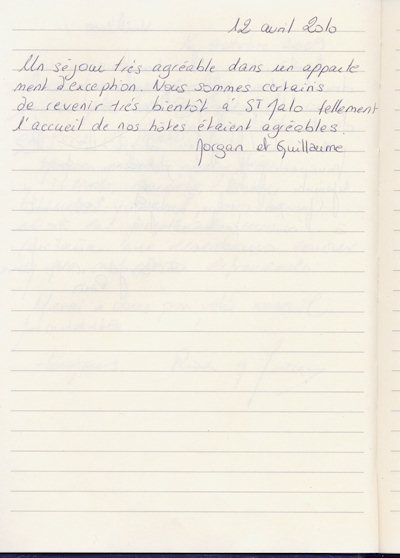 12 avril 2010
Un séjour très agréable dans un apparte
ment d'exception. Nous sommes certains
de revenir très bientôt à ST Malo tellement
l'accueil de nos hôtes étaient agréables.
Morgan et Guillaume